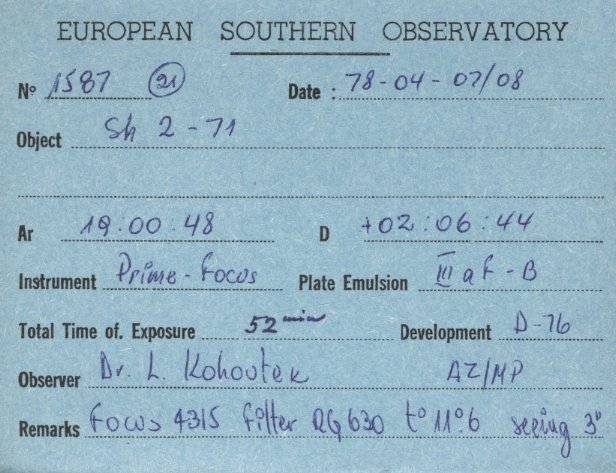 EUROPEAN SOUTHERN OBSERVATORY
Nº 1587 (21) Date : 78-04-07/08
Object Sh 2-71
Ar 19:00:48 D +02:06:44
Instrument Prime-Focus Plate Emulsion III aF-B
Total Time of. Exposure 52 min Development D-76
Observer Dr. L. Kohoutek AZ/MP
Remarks Focus 4315 filter RG 630 t° 11°6 seeing 3"